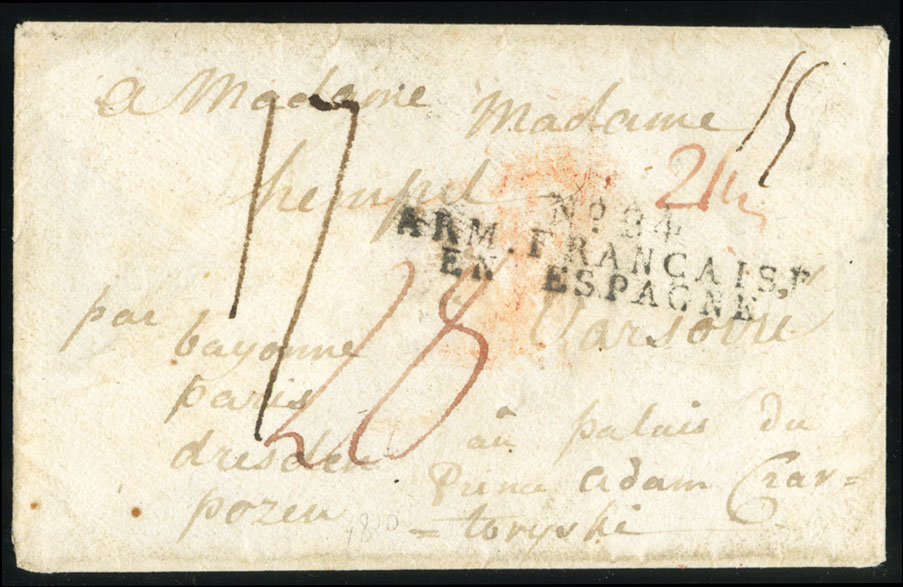 a Madame Madame
hempel
No. 34
ARM. FRANCAISE
EN ESPAGNE
Varsovie
par bayonne
paris
dresden
pozen
au palais du
Prince adam Czar=
=toryski
17
28
15
1810